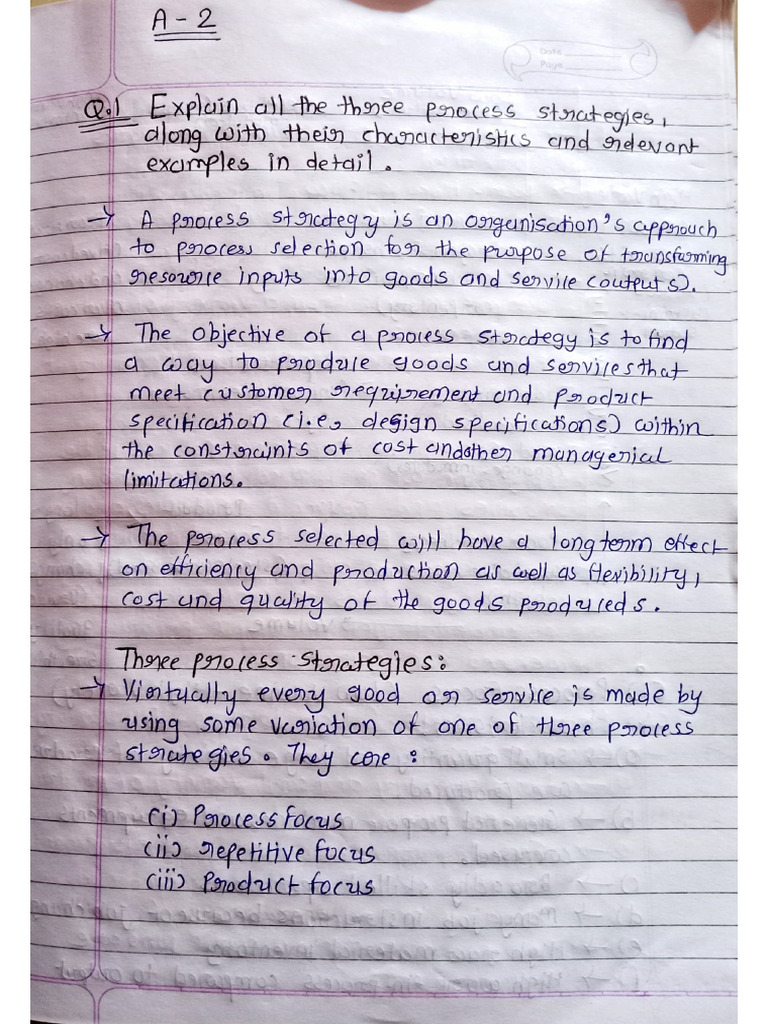 A - 2
Date
Page
Q.1 Explain all the three process strategies,
along with their characteristics and relevant
examples in detail.
→ A process strategy is an organisation's approach
to process selection for the purpose of transforming
resource inputs into goods and service (outputs).
→ The objective of a process strategy is to find
a way to produce goods and services that
meet customer requirement and product
specification (i.e, design specifications) within
the constraints of cost and other managerial
limitations.
→ The process selected will have a long term effect
on efficiency and production as well as flexibility,
cost and quality of the goods produceds.
Three process strategies:
→ Virtually every good or service is made by
using some variation of one of three process
strategies. They are :
(i) Process focus
(ii) repetitive focus
(iii) Product focus